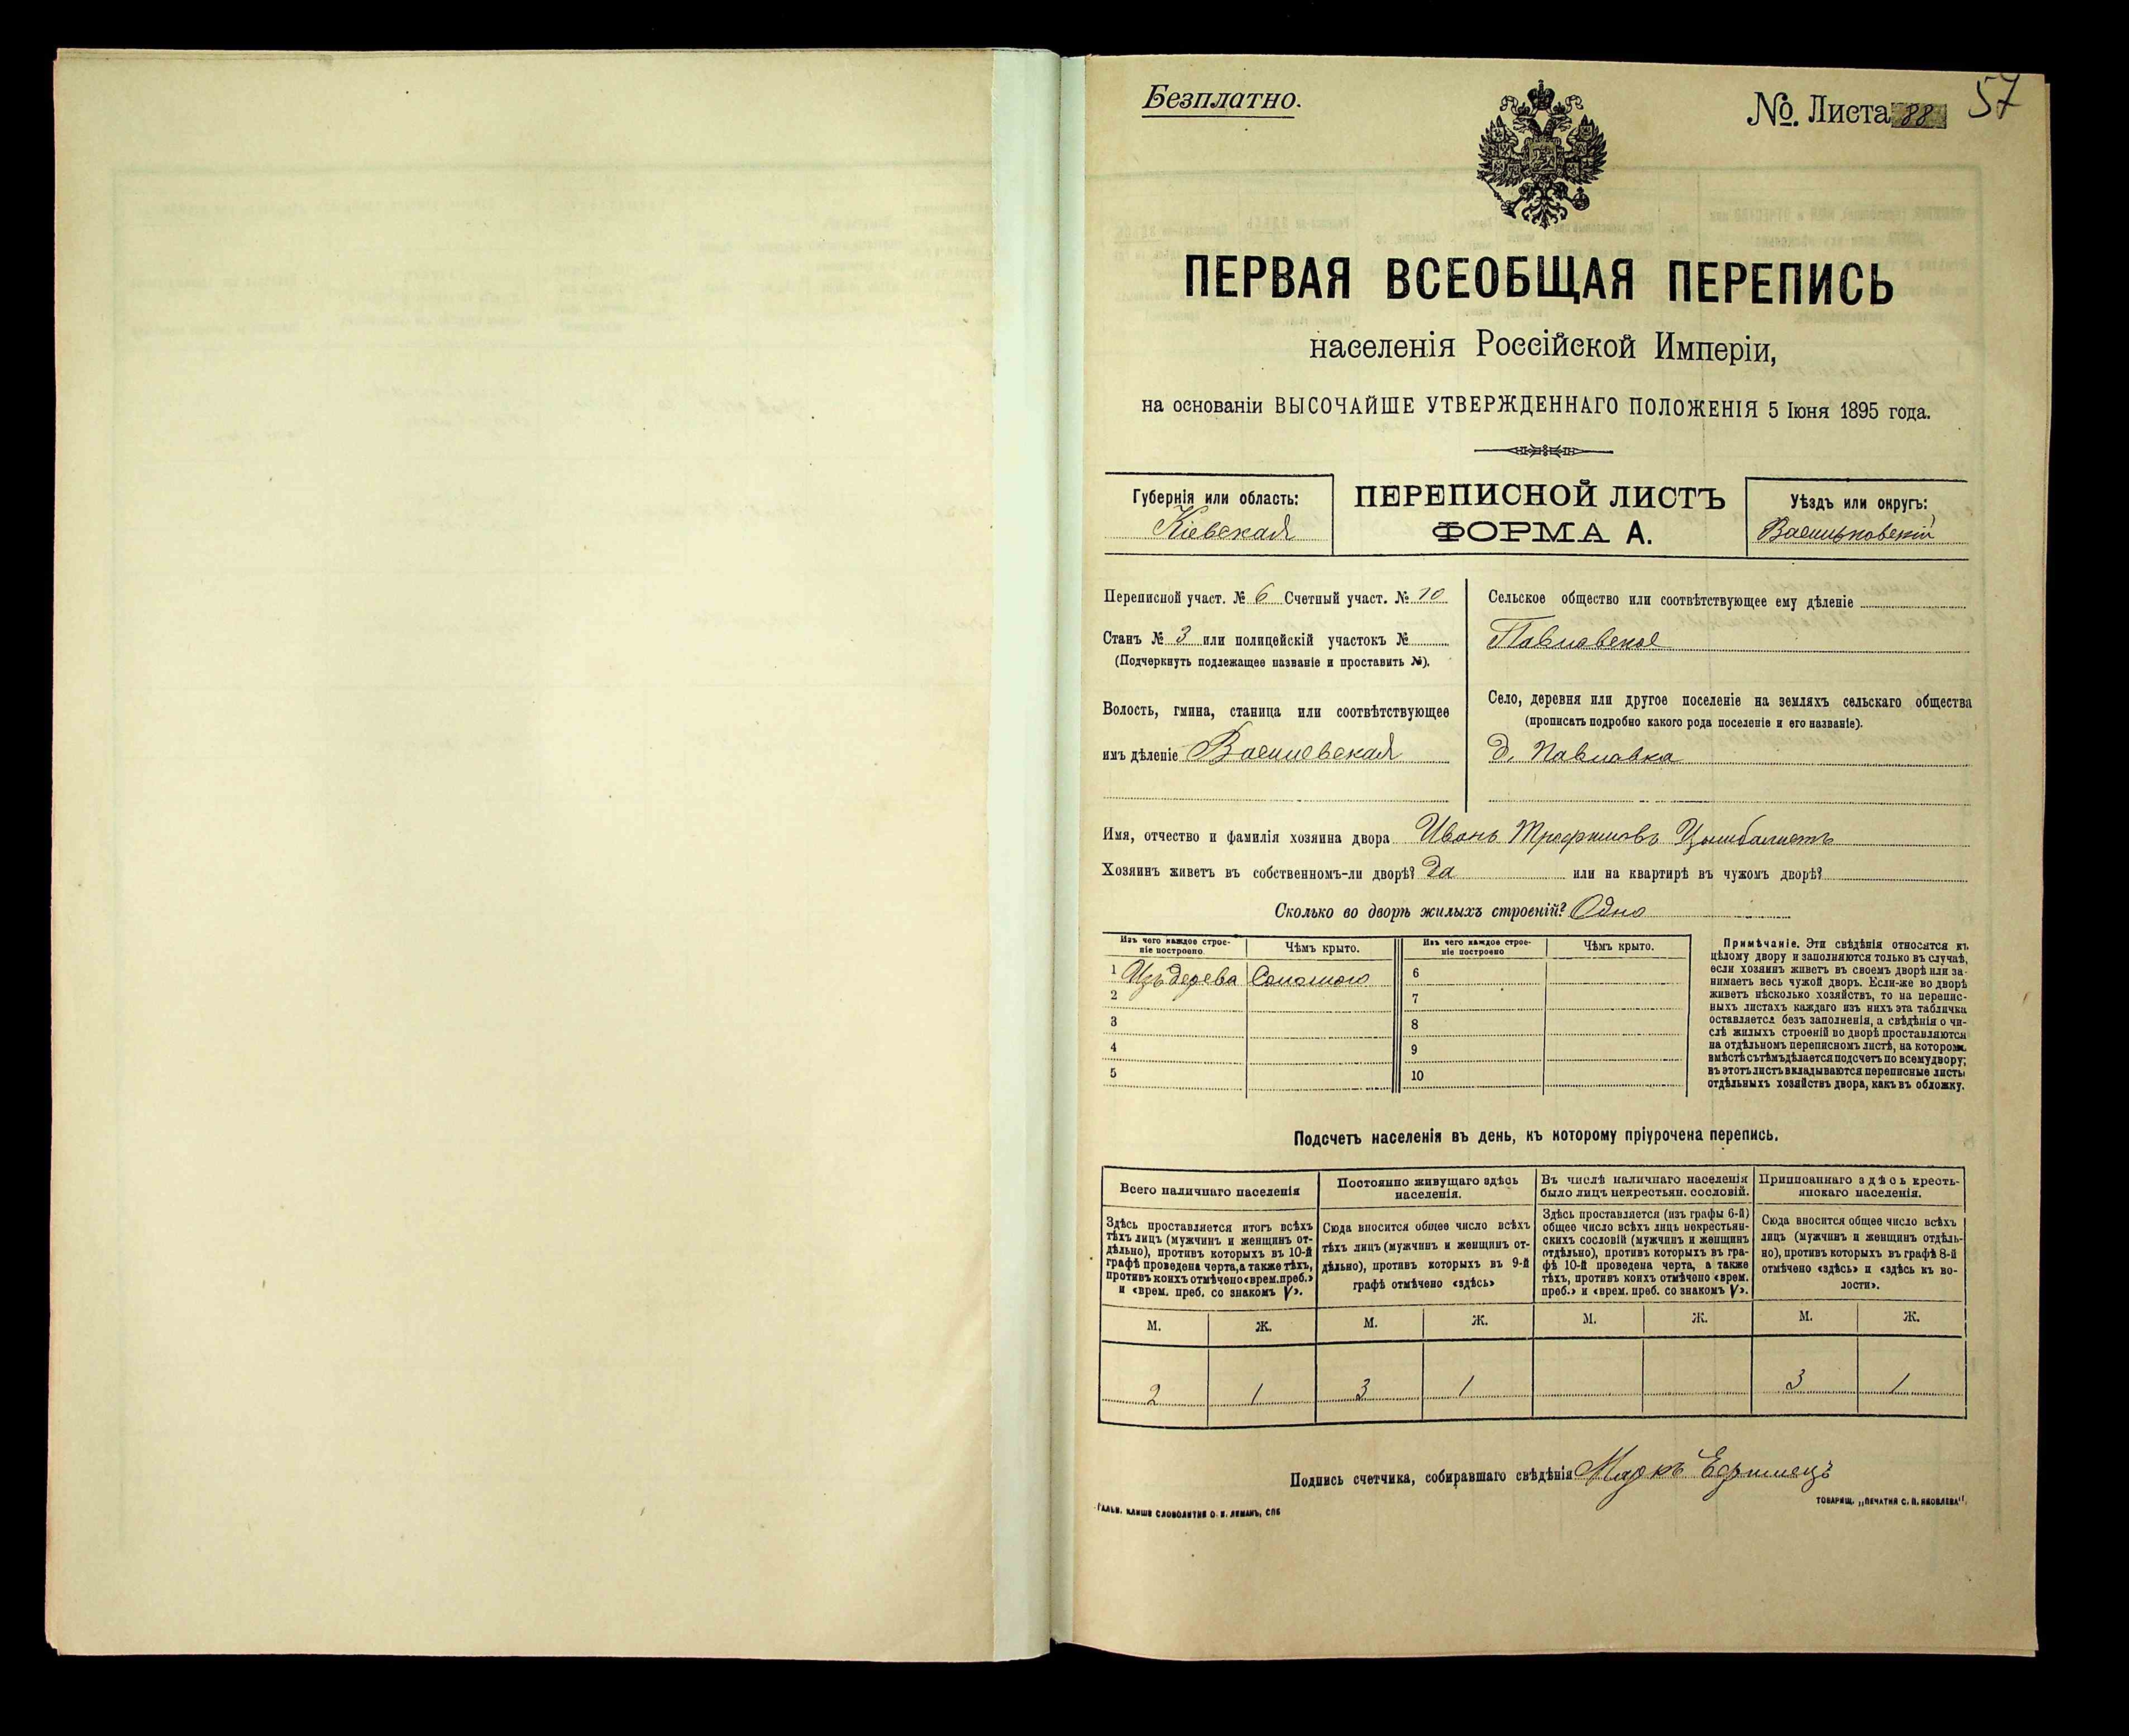 Безплатно.
№. Листа 88
57
ПЕРВАЯ ВСЕОБЩАЯ ПЕРЕПИСЬ
населенія Россійской Имперіи,
на основаніи ВЫСОЧАЙШЕ УТВЕРЖДЕННАГО ПОЛОЖЕНІЯ 5 Іюня 1895 года.
Губернія или область:
Кіевская
ПЕРЕПИСНОЙ ЛИСТЪ
ФОРМА А.
Уѣздъ или округъ:
Васильковскій
Переписной участ. № 6 Счетный участ. № 10
Станъ № 3 или полицейскій участокъ №
(Подчеркнуть подлежащее названіе и проставить №).
Волость, гмина, станица или соотвѣтствующее
имъ дѣленіе Василевская
Сельское общество или соотвѣтствующее ему дѣленіе
Павловское
Село, деревня или другое поселеніе на земляхъ сельскаго общества
(прописать подробно какого рода поселеніе и его названіе).
д. Павловка
Имя, отчество и фамилія хозяина двора Иванъ Трофимовъ Цымбалистъ
Хозяинъ живетъ въ собственномъ-ли дворѣ? Да или на квартирѣ въ чужомъ дворѣ?
Сколько во дворѣ жилыхъ строеній? Одно
Изъ чего каждое строе-
ніе построено.
Чѣмъ крыто.
Изъ чего каждое строе-
ніе построено
Чѣмъ крыто.
1 Изъ дерева Соломою
2
3
4
5
6
7
8
9
10
Примѣчаніе. Эти свѣдѣнія относятся къ
цѣлому двору и заполняются только въ случаѣ,
если хозяинъ живетъ въ своемъ дворѣ или за-
нимаетъ весь чужой дворъ. Если-же во дворѣ
живетъ нѣсколько хозяйствъ, то на перепис-
ныхъ листахъ каждаго изъ нихъ эта табличка
оставляется безъ заполненія, а свѣдѣнія о чи-
слѣ жилыхъ строеній во дворѣ проставляются
на отдѣльномъ переписномъ листѣ, на которомъ
вмѣстѣ съ тѣмъ дѣлается подсчетъ по всему двору;
въ этотъ листъ вкладываются переписные листы
отдѣльныхъ хозяйствъ двора, какъ въ обложку.
Подсчетъ населенія въ день, къ которому пріурочена перепись.
Всего наличнаго населенія
Здѣсь проставляется итогъ всѣхъ
тѣхъ лицъ (мужчинъ и женщинъ от-
дѣльно), противъ которыхъ въ 10-й
графѣ проведена черта, а также тѣхъ,
противъ коихъ отмѣчено «врем. преб.»
и «врем. преб. со знакомъ V».
Постоянно живущаго здѣсь
населенія.
Сюда вносится общее число всѣхъ
тѣхъ лицъ (мужчинъ и женщинъ от-
дѣльно), противъ которыхъ въ 9-й
графѣ отмѣчено «здѣсь»
Въ числѣ наличнаго населенія
было лицъ некрестьян. сословій.
Здѣсь проставляется (изъ графы 6-й)
общее число всѣхъ лицъ некрестьян-
скихъ сословій (мужчинъ и женщинъ
отдѣльно), противъ которыхъ въ гра-
фѣ 10-й проведена черта, а также
тѣхъ, противъ коихъ отмѣчено «врем.
преб.» и «врем. преб. со знакомъ V».
Приписаннаго здѣсь кресть-
янскаго населенія.
Сюда вносится общее число всѣхъ
лицъ (мужчинъ и женщинъ отдѣль-
но), противъ которыхъ въ графѣ 8-й
отмѣчено «здѣсь» и «здѣсь къ во-
лости».
М. Ж. М. Ж. М. Ж. М. Ж.
2 1 3 1 3 1
Подпись счетчика, собиравшаго свѣдѣнія Маркъ Ефимецъ
ГАЛЬВ. КЛИШЕ СЛОВОЛИТНИ О. И. ЛЕМАНЪ, СПБ
ТОВАРИЩ. „ПЕЧАТНЯ С. П. ЯКОВЛЕВА".